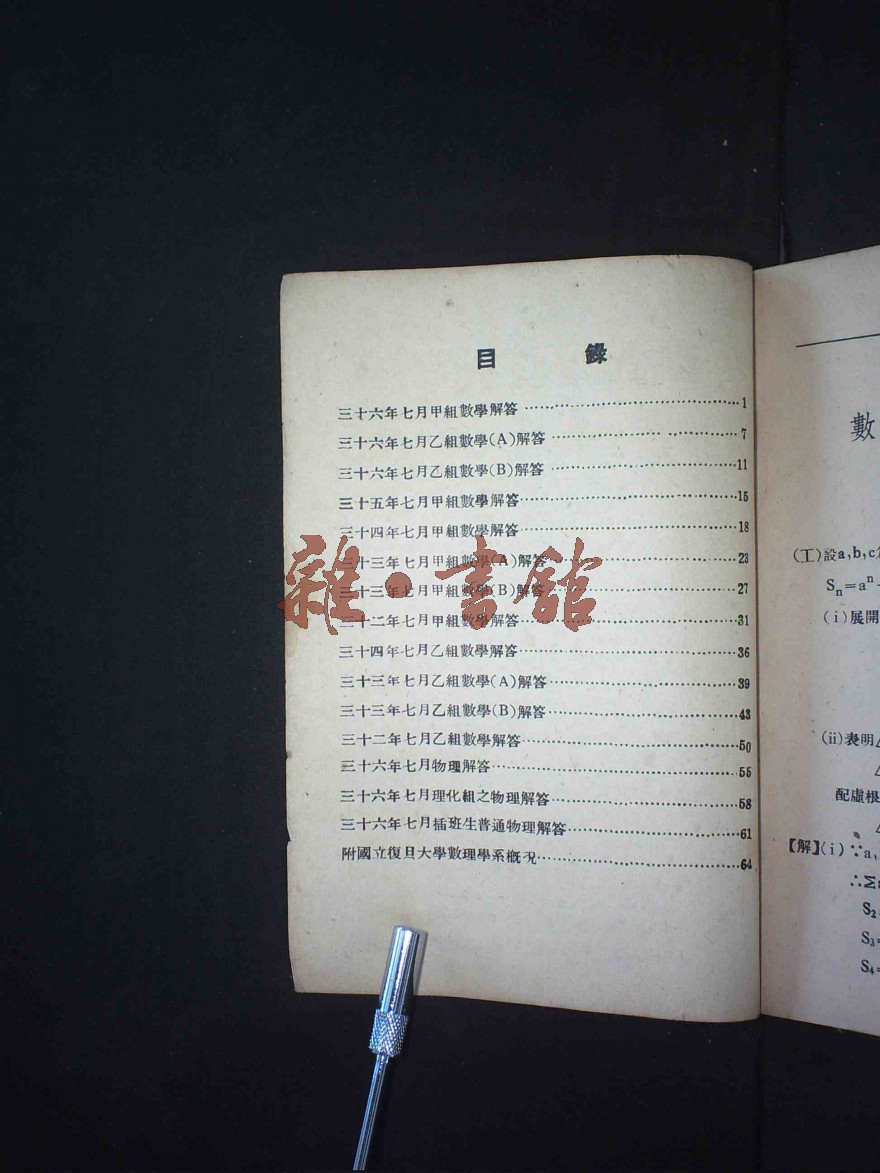 目 錄
三十六年七月甲組數學解答……………1
三十六年七月乙組數學(A)解答……………7
三十六年七月乙組數學(B)解答……………11
三十五年七月甲組數學解答……………15
三十四年七月甲組數學解答……………18
三十三年七月甲組數學(A)解答……………23
三十三年七月甲組數學(B)解答……………27
三十二年七月甲組數學解答……………31
三十四年七月乙組數學解答……………36
三十三年七月乙組數學(A)解答……………39
三十三年七月乙組數學(B)解答……………43
三十二年七月乙組數學解答……………50
三十六年七月物理解答……………55
三十六年七月理化組之物理解答……………58
三十六年七月插班生普通物理解答……………61
附國立復旦大學數理學系概況……………64
雜·書館
數
(工)設a,b,c
Sn=aⁿ
(i)展開
(ii)表明
配虛根
【解】(i)∵a,
∴Σ
S₂
S₃=
S₄=